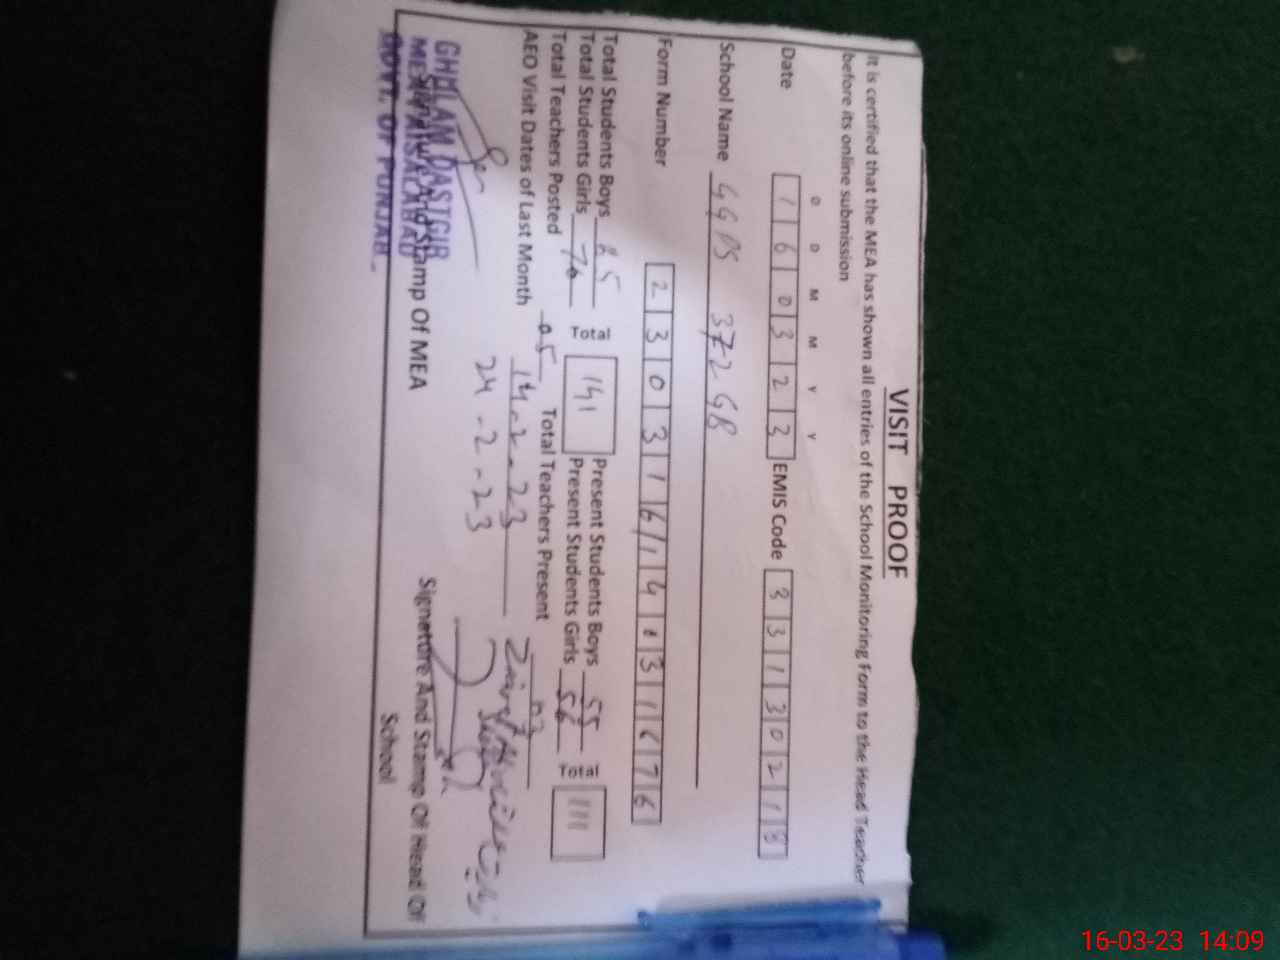 VISIT PROOF
It is certified that the MEA has shown all entries of the School Monitoring Form to the Head Teacher
before its online submission
D D M M Y Y
Date 1 6 0 3 2 3 EMIS Code 3 3 1 3 0 2 1 8
School Name GGPS 372 GB
Form Number 2 3 0 3 1 6 1 4 0 3 1 6 7 6
Total Students Boys Total 141 Present Students Boys 55 Total 111
Total Students Girls 76 Present Students Girls 56
Total Teachers Posted 05 Total Teachers Present
AEO Visit Dates of Last Month 14-2-23
24-2-23
GHULAM DASTGIR
MEA FAISALABAD
GOVT. OF PUNJAB
Signature And Stamp Of MEA
Signature And Stamp Of Head Of
School
16-03-23 14:09